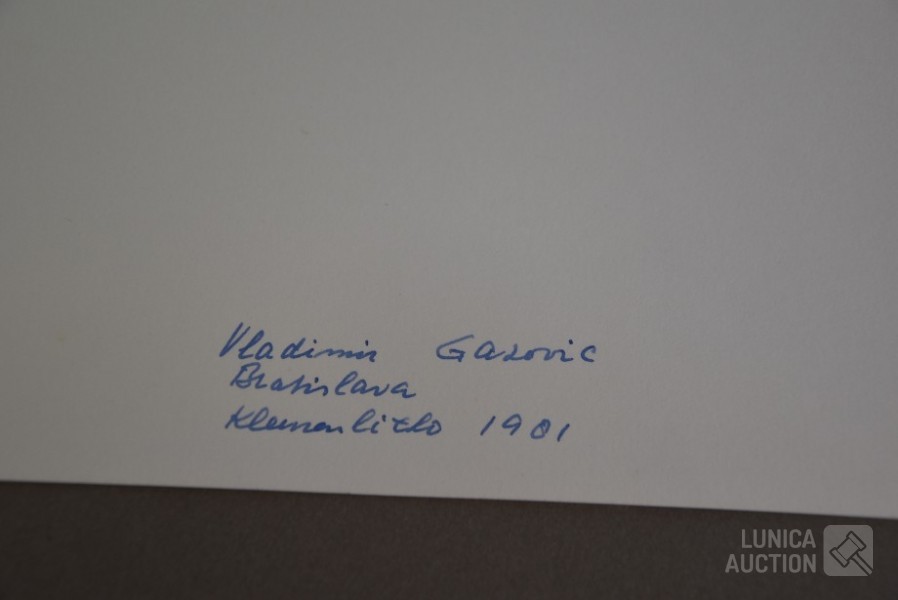 Vladimir Gazovic
Bratislava
1981
LUNICA
AUCTION